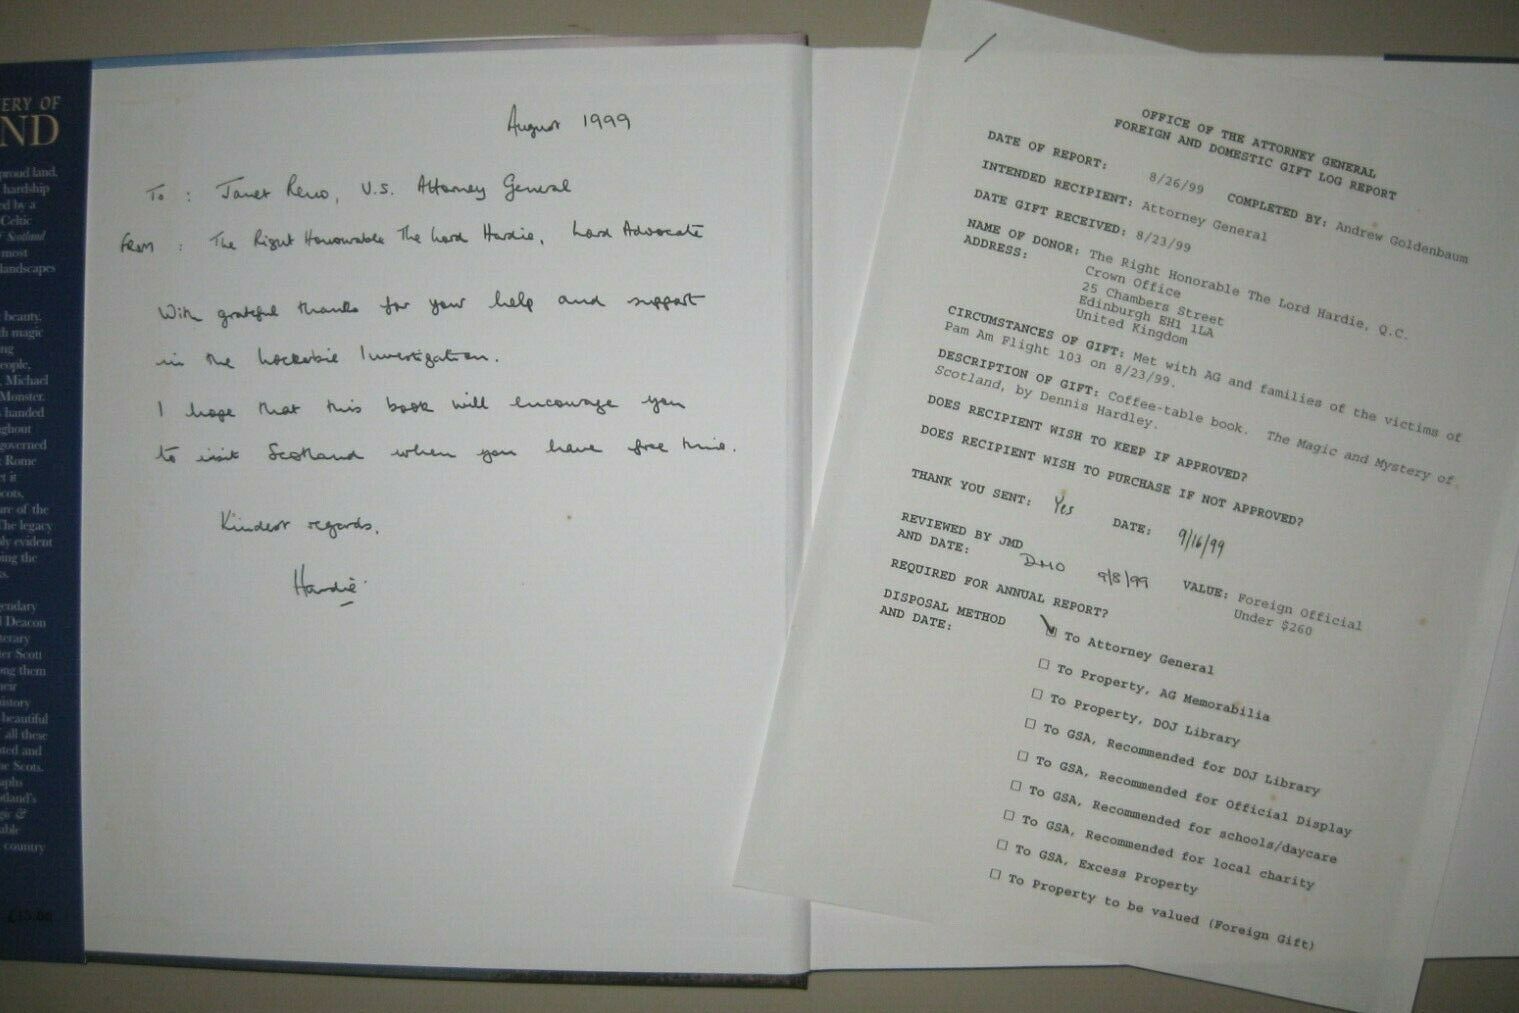 ERY OF
ND
proud land,
hardship
ed by a
Celtic
Scotland
most
landscapes
beauty,
th magic
ng
eople,
, Michael
Monster.
s handed
ghout
governed
Rome
et is
cots,
are of the
The legacy
ly evident
ing the
s.
gendary
l Deacon
terary
ter Scott
ong them
heir
istory
beautiful
all these
ted and
he Scots.
aphs
otland's
gic &
able
country
August 1999
To : Janet Reno, U.S. Attorney General
From : The Right Honourable The Lord Hardie, Lord Advocate
With grateful thanks for your help and support
in the Lockerbie Investigation.
I hope that this book will encourage you
to visit Scotland when you have free time.
Kindest regards,
Hardie
OFFICE OF THE ATTORNEY GENERAL
FOREIGN AND DOMESTIC GIFT LOG REPORT
DATE OF REPORT: 8/26/99 COMPLETED BY: Andrew Goldenbaum
INTENDED RECIPIENT: Attorney General
DATE GIFT RECEIVED: 8/23/99
NAME OF DONOR: The Right Honorable The Lord Hardie, Q.C.
ADDRESS: Crown Office
25 Chambers Street
Edinburgh EH1 1LA
United Kingdom
CIRCUMSTANCES OF GIFT: Met with AG and families of the victims of
Pam Am Flight 103 on 8/23/99.
DESCRIPTION OF GIFT: Coffee-table book. The Magic and Mystery of
Scotland, by Dennis Hardley.
DOES RECIPIENT WISH TO KEEP IF APPROVED?
DOES RECIPIENT WISH TO PURCHASE IF NOT APPROVED?
THANK YOU SENT: Yes DATE: 9/16/99
REVIEWED BY JMD
AND DATE: DMO 9/8/99 VALUE: Foreign Official
Under $260
REQUIRED FOR ANNUAL REPORT?
DISPOSAL METHOD
AND DATE:
To Attorney General
To Property, AG Memorabilia
To Property, DOJ Library
To GSA, Recommended for DOJ Library
To GSA, Recommended for Official Display
To GSA, Recommended for schools/daycare
To GSA, Recommended for local charity
To GSA, Excess Property
To Property to be valued (Foreign Gift)